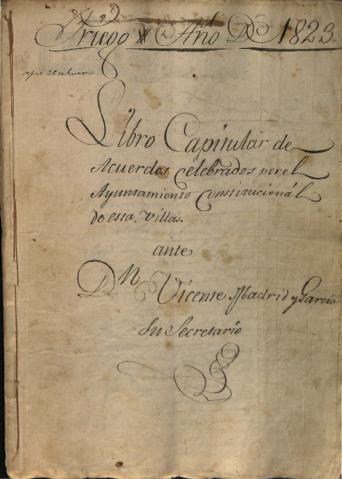 Priego Año D 1823
Libro Capitular de
Acuerdos Celebrados por el
Ayuntamiento Constitucional
de essa Villa.
ante
Dn Vicente Madrid y Garcia
Su Secretario